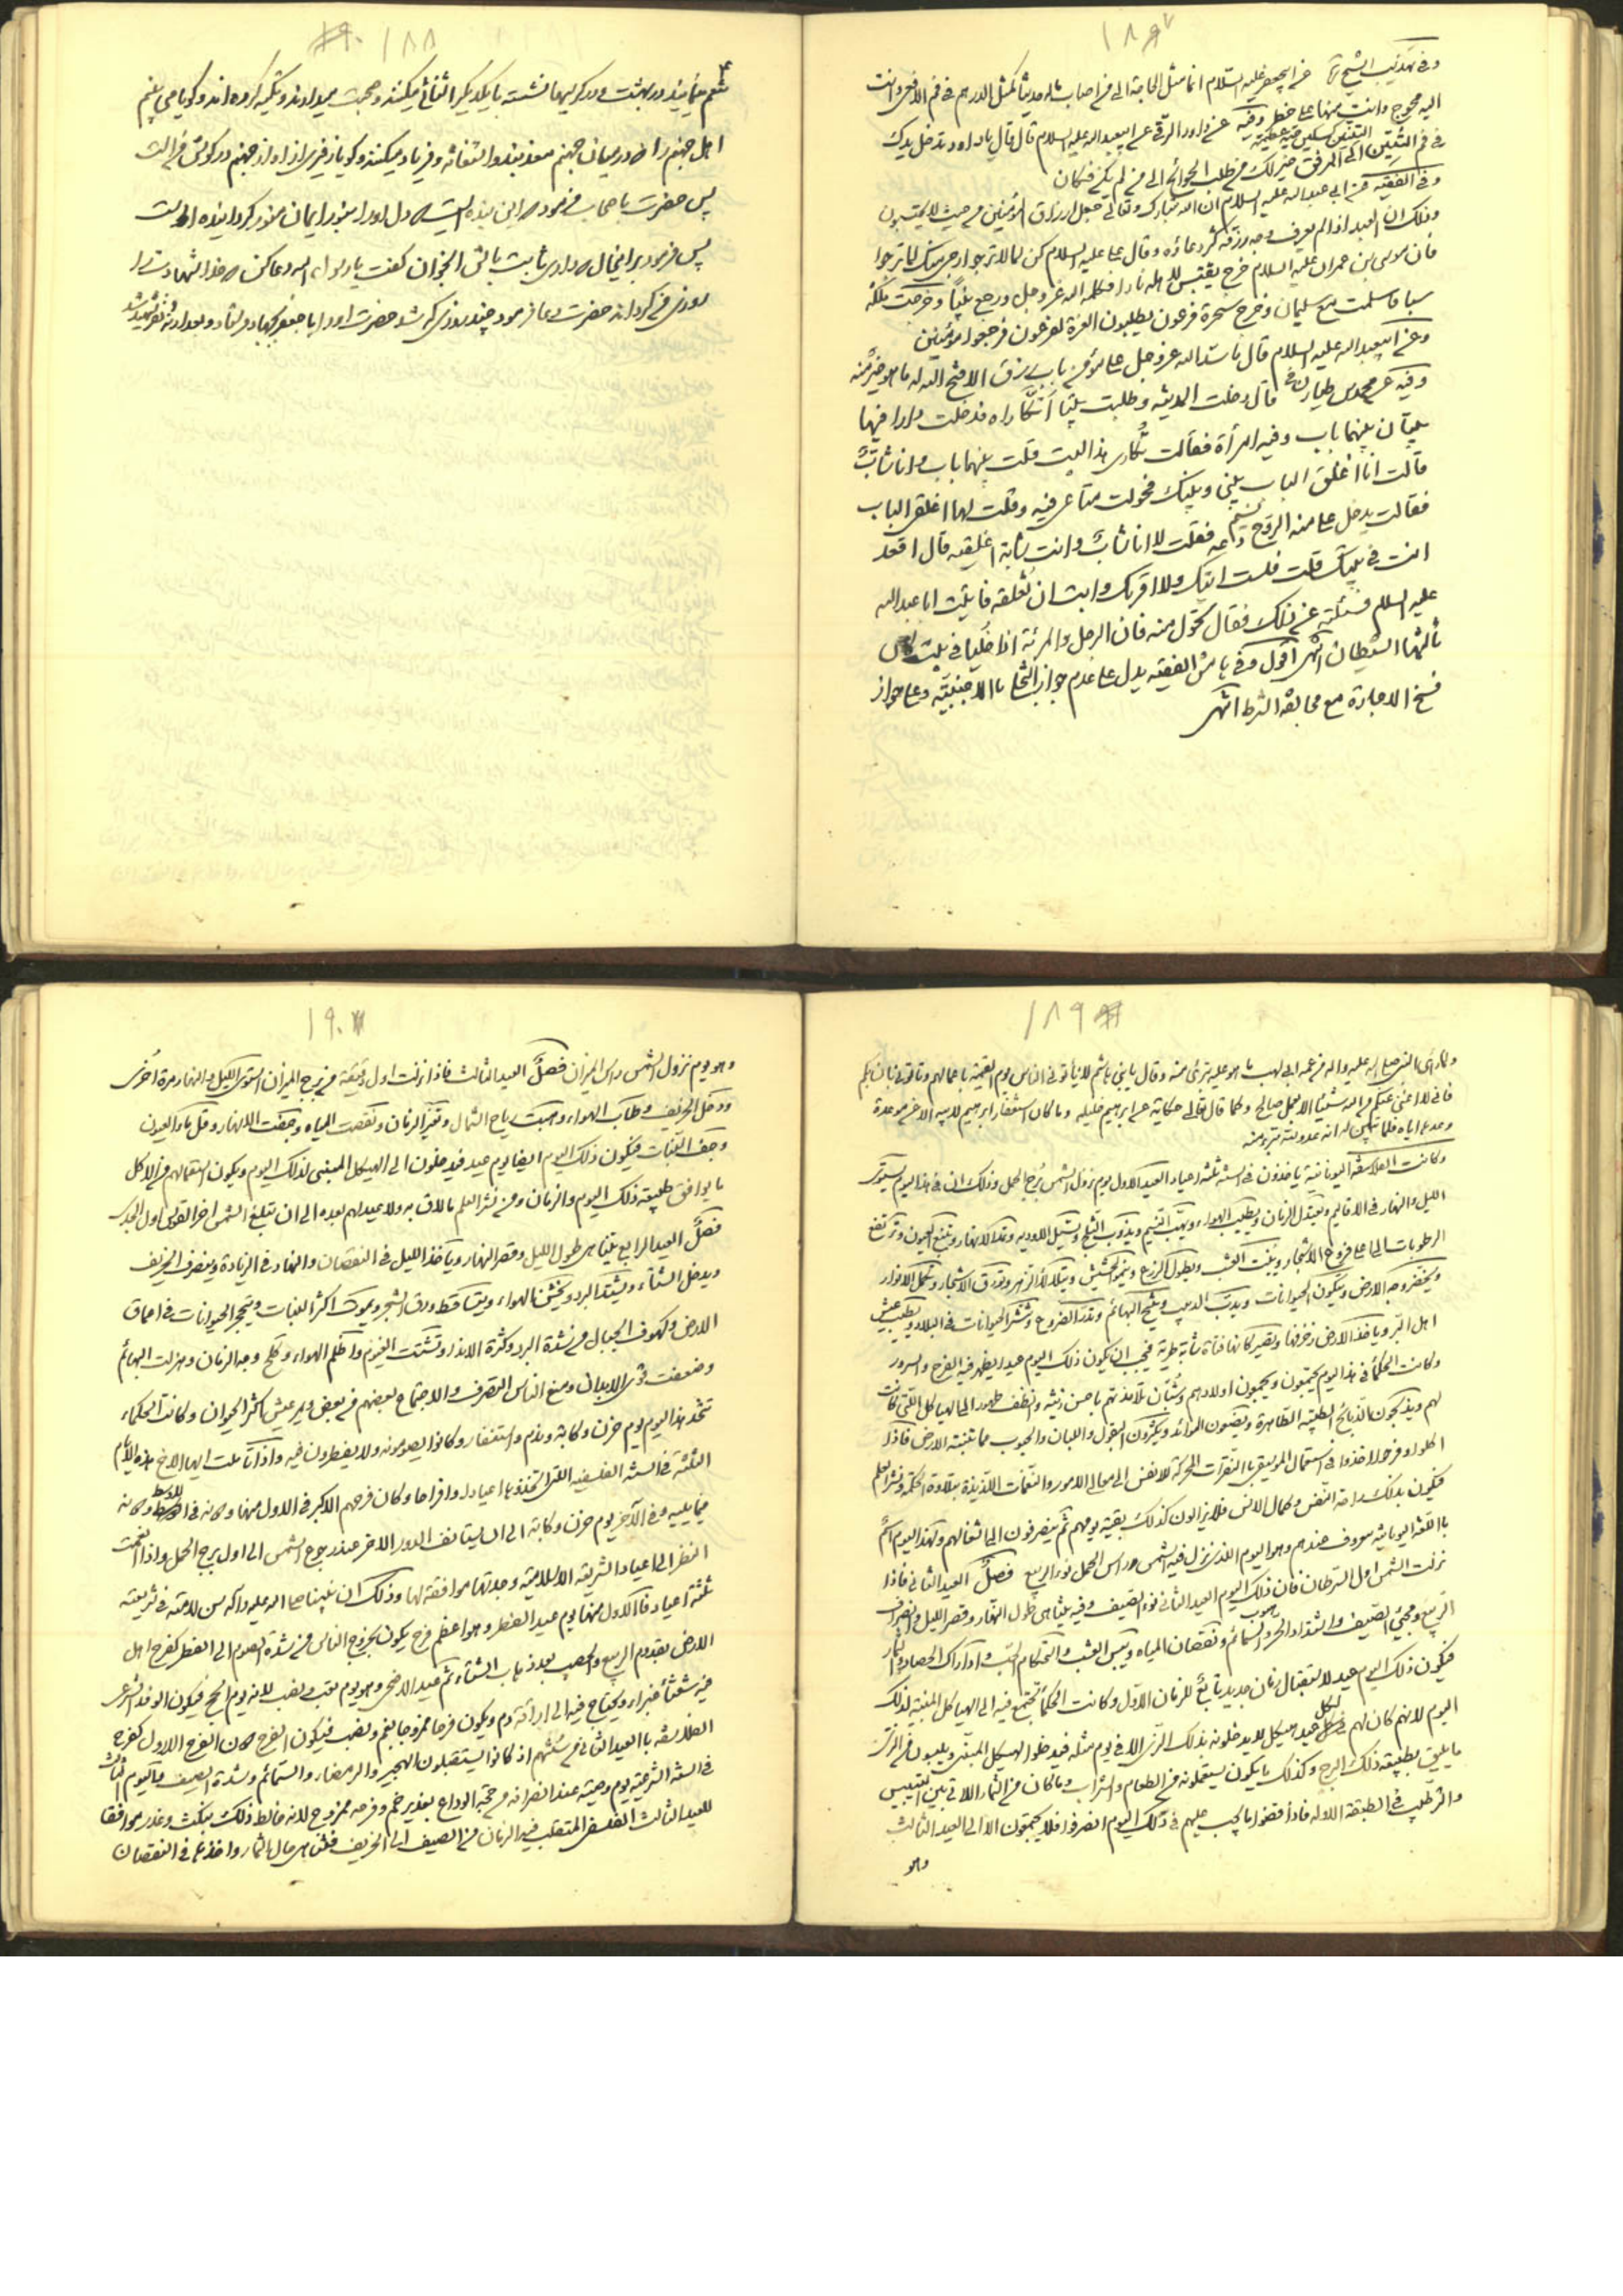 ١٨٧
وفى تهذيب الشيخ عن ابيجعفر عليه السلام انما مثل الحاجة الى من اصاب ماله حديثا كمثل الدرهم فى فم الافعى انت
اليه محوج وانت منها على خطر وفيه عن داود الرقى عن ابيعبداله عليه السلام قال قال يا داود تدخل يدك
فى فم التنين الى المرفق خير لك من طلب الحوائج الى من لم يكن فكان
وفى الفقيه عن ابى عبداله عليه السلام ان اله تبارك وتعالى جعل ارزاق المؤمنين من حيث لا يحتسبون
وذلك ان العبد اذا لم يعرف وجه رزقه كثر دعاؤه وقال على عليه السلام كن لما لا ترجوا ارجى منك لما ترجوا
فان موسى بن عمران عليه السلام خرج يقتبس لاهله نارا فكلمه اله عز وجل ورجع نبيا وخرجت ملكة
سبا فاسلمت مع سليمان وخرج سحرة فرعون يطلبون العزة لفرعون فرجعوا مؤمنين
وعن ابيعبداله عليه السلام قال ما سد اله عز وجل على مؤمن باب رزق الا فتح اله له ما هو خير منه
وفيه عن محمد بن طيار قال دخلت المدينه وطلبت بيتا اتكاراه فدخلت دارا فيها
بيتان بينهما باب وفيه امرأة فقالت تكارى هذا البيت قلت بينهما باب وانا شاب
قالت انا اغلق الباب بينى وبينك فحولت متاعى فيه وقلت لها اغلقى الباب
فقالت يدخل على منه الروح دعه فقلت لا انا شاب وانت شابة اغلقيه قال اقعد
انت فى بيتك قلت فلست اتيك ولا اقربك وابت ان تغلقه فاتيت ابا عبداله
عليه السلم فسئلته عن ذلك فقال تحول منه فان الرجل والمرئة اذا خليا فى بيت كان
ثالثهما الشيطان انتهى اقول وفى هامش الفقيه يدل على عدم جواز التخلى بالاجنبية وعلى جواز
فسخ الاجارة مع مخالفة الشرط انتهى
١٨٨
اهل جهنم را در ميان جهنم معذبند و استغاثه و فرياد ميكنند و گويا زفير آواز جهنم در گوش من است
پس حضرت باصحاب فرمود اين بنده ايست دل او را بنور ايمان منور گردانيده است
پس فرمود بر اينحال دارى ثابت باش الجوان گفت يا رسول اله دعا كن خدا شهادت را
روزى من گرداند حضرت دعا فرمود چند روزى كه شد حضرت او را با جعفر بجهاد فرستاد و بعد از نه نفر شهيد شد
١٨٩
فانى لا اغنى عنكم من اله شيئا الا بعمل صالح وكما قال تعالى حكاية عن ابرهيم خليله وما كان استغفار ابرهيم لابيه الا عن موعدة
وعدها اياه فلما تبين له انه عدو لله تبرء منه
وكانت الفلاسفة اليونانية ياخذون فى السنه ثلثة اعياد العيد الاول يوم نزول الشمس برج الحمل وذلك ان فى هذا اليوم يستوى
الليل والنهار فى الاقاليم ويعتدل الزمان ويطيب الهواء ويهب النسيم ويذوب الثلج وتسيل الاوديه وتمد الانهار وتنبع العيون وترتفع
الرطوبات الى اعلى فروع الاشجار وينبت العشب ويطول الزرع وينمو الحشيش ويتلألأ الزهر وتورق الاشجار وتكمل الانوار
ويخضر وجه الارض ويتكون الحيوانات ويدب الدبيب وتنتج البهائم وتدر الضروع وتنتشر الحيوانات فى البلاد ويطيب عيش
اهل البر وياخذ الارض زخرفها وتصير كانها فتاة شابة طرية فيجب ان يكون ذلك اليوم عيدا يظهر فيه الفرح والسرور
وكانت الحكماء فى هذا اليوم يجتمعون ويجمعون اولادهم وشبان تلامذتهم باحسن زينه وانظف طهور الى الهياكل اللتى كانت
لهم ويذبحون الذبائح الطيبة الطاهرة ويضعون الموائد ويكثرون البقول والالبان والحبوب مما تنبته الارض فاذا
اكلوا وفرحوا اخذوا فى استعمال الموسيقى بالنقرات المحركة للانفس الى معالى الامور والنغمات اللذيذة بتلاوة الحكمة ونشر العلم
فيكون بذلك راحة النفس وكمال الانس فلا يزالون كذلك بقية يومهم ثم ينصرفون الى اشغالهم ولهذا اليوم اسم
باللغة اليونانيه معروف عندهم وهو اليوم اللذى تنزل فيه الشمس راس الحمل نور الربيع فصل العيد الثانى فاذا
نزلت الشمس اول السرطان فان ذلك اليوم العيد الثانى نوء الصيف وفيه يتناهى طول النهار وقصر الليل وانصراف
الربيع ومجيئ الصيف واشتداد الحر وهبوب السمائم ونقصان المياه ويبس العشب واستحكام الحب وادراك الحصاد والثمار
فيكون ذلك اليوم عيد لاستقبال زمان جديد تابع للزمان الاول وكانت الحكماء تجتمع فيه الى الهياكل المبنية لذلك
اليوم لانهم كان لهم لكل عيد هيكل لا يدخلونه بذلك الزى الا فى يوم مثله فيدخلوا الهيكل المبنى ويلبسون من الزى
ما يليق بطبيعة ذلك البرج وكذلك ما يكون يستعملونه من الطعام والشراب وما كان من الثمار اللاتى بين التيبيس
والترطيب فى الطبقة الاوله فاذا قضوا ما يجب عليهم فى ذلك اليوم انصرفوا فلا يجتمعون الا الى العيد الثالث
وهو
١٩٠
وهو يوم نزول الشمس راس الميزان فصل العيد الثالث فاذا نزلت اول دقيقة من برج الميزان استوى الليل والنهار مرة اخرى
ودخل الخريف وطاب الهواء وهبت رياح الشمال وتغير الزمان ونقصت المياه وجفت الانهار وقل ماء العيون
وجف النبات فيكون ذلك اليوم ايضا يوم عيد فيدخلون الى الهيكل المبنى لذلك اليوم ويكون استعمالهم من الاكل
ما يوافق طبيعة ذلك اليوم والزمان ومن نشر العلم ما لاق به ولا عيد لهم بعده الى ان تبلغ الشمس اخر القوس اول الجدى
فصل العيد الرابع يتناهى طول الليل وقصر النهار وياخذ الليل فى النقصان والنهار فى الزيادة وينصرف الخريف
ويدخل الشتاء ويشتد البرد ويخشن الهواء ويتساقط ورق الشجر ويموت اكثر النبات وينحجر الحيوانات فى اعماق
الارض وكهوف الجبال من شدة البرد وكثرة الانداء وتنشئت الغيوم واظلم الهواء وكلح وجه الزمان وهزلت البهائم
وضعفت قوى الابدان ومنع الناس التصرف والاجتماع بعضهم من بعض ويمر عيش اكثر الحيوان وكانت الحكماء
تتخذ هذا اليوم يوم حزن وكابة وندم واستغفار وكانوا يصومونه ولا يفطرون فيه واذا تاملت ايها الاخ هذه الايام
الثلثة فى السنه الفلسفيه اللتى اتخذوها اعيادا وافراحا وكان فرحهم الاكبر فى الاول منها
فيما يليه وفى الآخر يوم حزن وكابة الى ان يستانف الدور الاخر عند رجوع الشمس الى اول برج الحمل واذا انعمت
النظر الى اعياد الشريعة الاسلامية وجدتها موافقة لها وذلك ان نبينا صلى اله عليه وآله سن لامته فى شريعته
ثلثة اعياد فالاول منها يوم عيد الفطر وهو اعظم فرح يكون بخروج الناس من شدة الصوم الى الفطر كفرح اهل
الارض بقدوم الربيع والخصب بعد ذهاب الشتاء ثم عيد الاضحى وهو يوم تعب ونصب لانه يوم الحج فيكون الوفد اليه
فيه شعثا غبراء ويحتاج فيه الى اراقة دم ويكون فرحا ممزوجا بغم ونصب فيكون الفرح دون الفرح الاول كفرح
الفلاسفه بالعيد الثانى من سنتهم اذ كانوا يستقبلون الهجير والرمضاء والسمائم وشدة الصيف واليوم الثالث
فى السنه الشرعيه يوم وصيته عند انصرافه من حجة الوداع بغدير خم وفرحه ممزوج لانه خالط ذلك بنكث وغدر موافقا
للعيد الثالث الفلسفى المتقلب فيه الزمان من الصيف الى الخريف